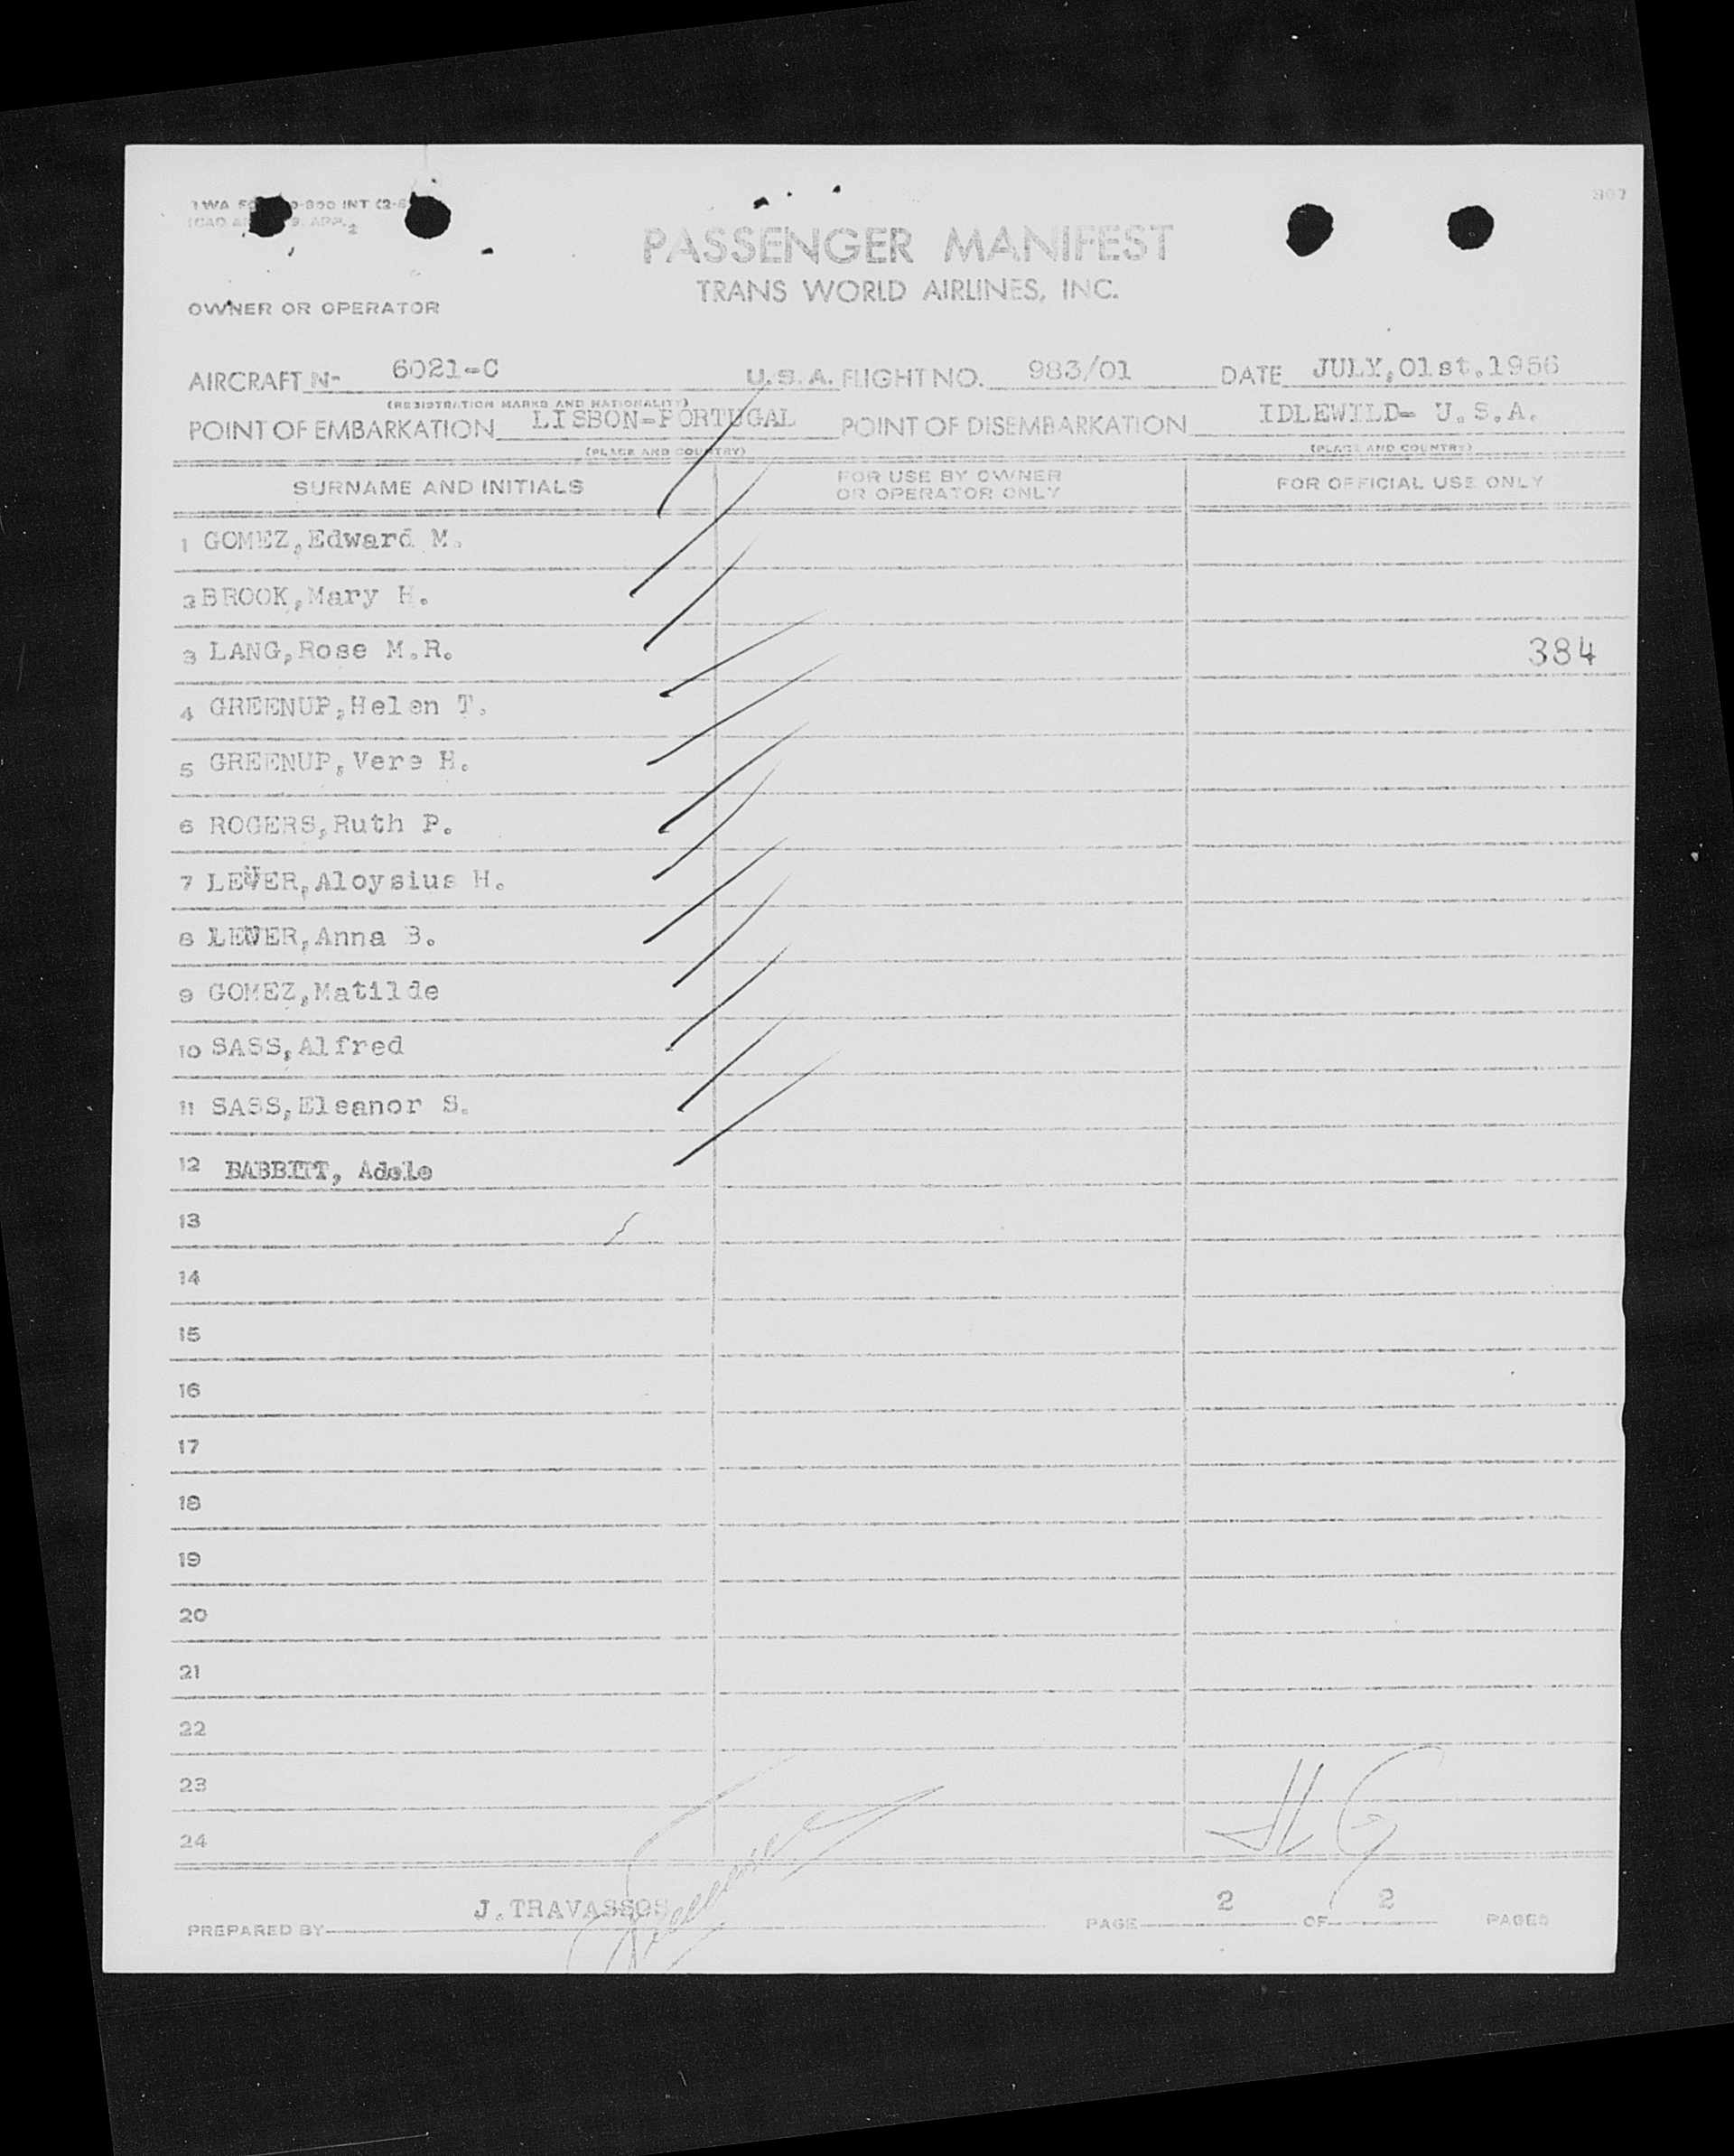 PASSENGER MANIFEST
TRANS WORLD AIRLINES, INC.
OWNER OR OPERATOR
AIRCRAFT N- 6021-C U.S.A. FLIGHT NO. 983/01 DATE JULY,01st.1956
(REGISTRATION MARKS AND NATIONALITY)
POINT OF EMBARKATION LISBON-PORTUGAL POINT OF DISEMBARKATION IDLEWILD- U.S.A.
(PLACE AND COUNTRY) (PLACE AND COUNTRY)
SURNAME AND INITIALS FOR USE BY OWNER OR OPERATOR ONLY FOR OFFICIAL USE ONLY
1 GOMEZ,Edward M.
2 BROOK,Mary H.
3 LANG,Rose M.R. 384
4 GREENUP,Helen T.
5 GREENUP,Vera H.
6 ROGERS,Ruth P.
7 Aloysius H.
8 Anna B.
9 GOMEZ,Matilde
10 SASS,Alfred
11 SASS,Eleanor S.
12 BABBITT, Adele
13
14
15
16
17
18
19
20
21
22
23
24
PREPARED BY J.TRAVASSOS PAGE 2 OF 2 PAGES